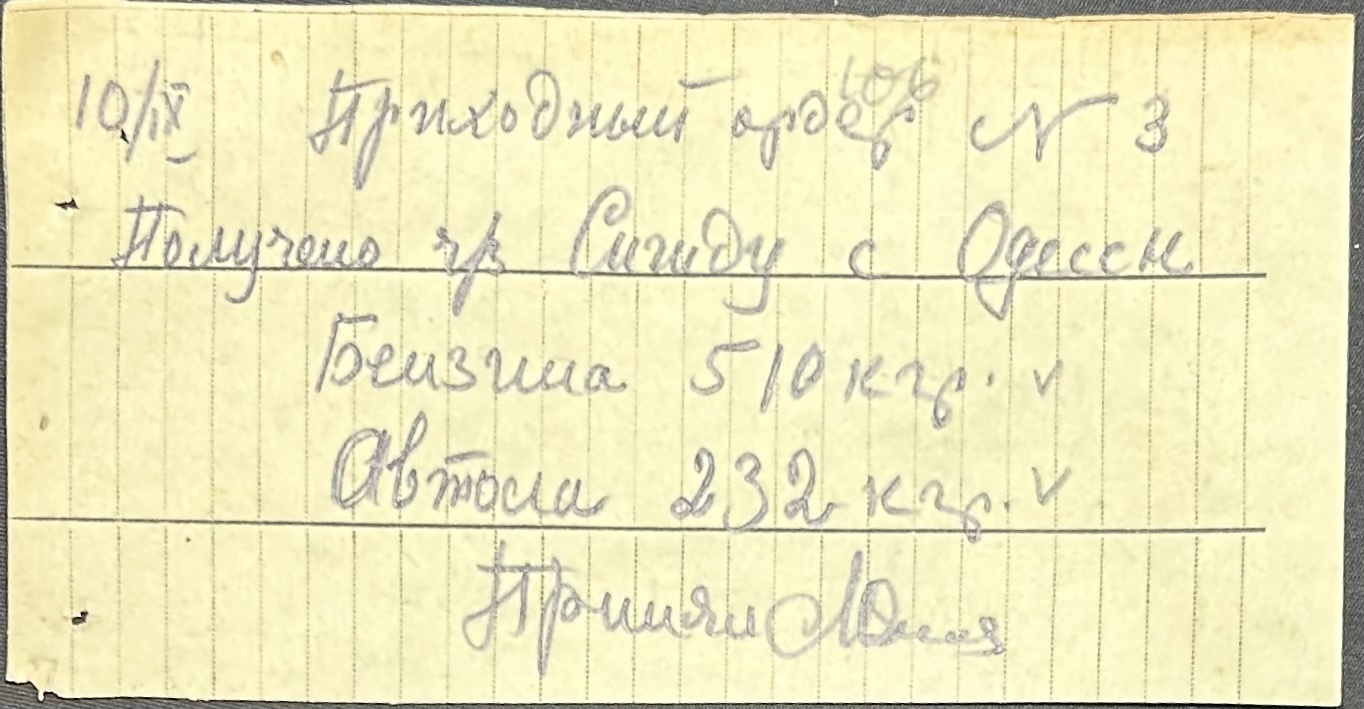 10/IX Приходный ордер N 3
106
Получено чр Сигиду с Одессы
Бензина 510 кгр. v
Автола 232 кгр. v
Принял